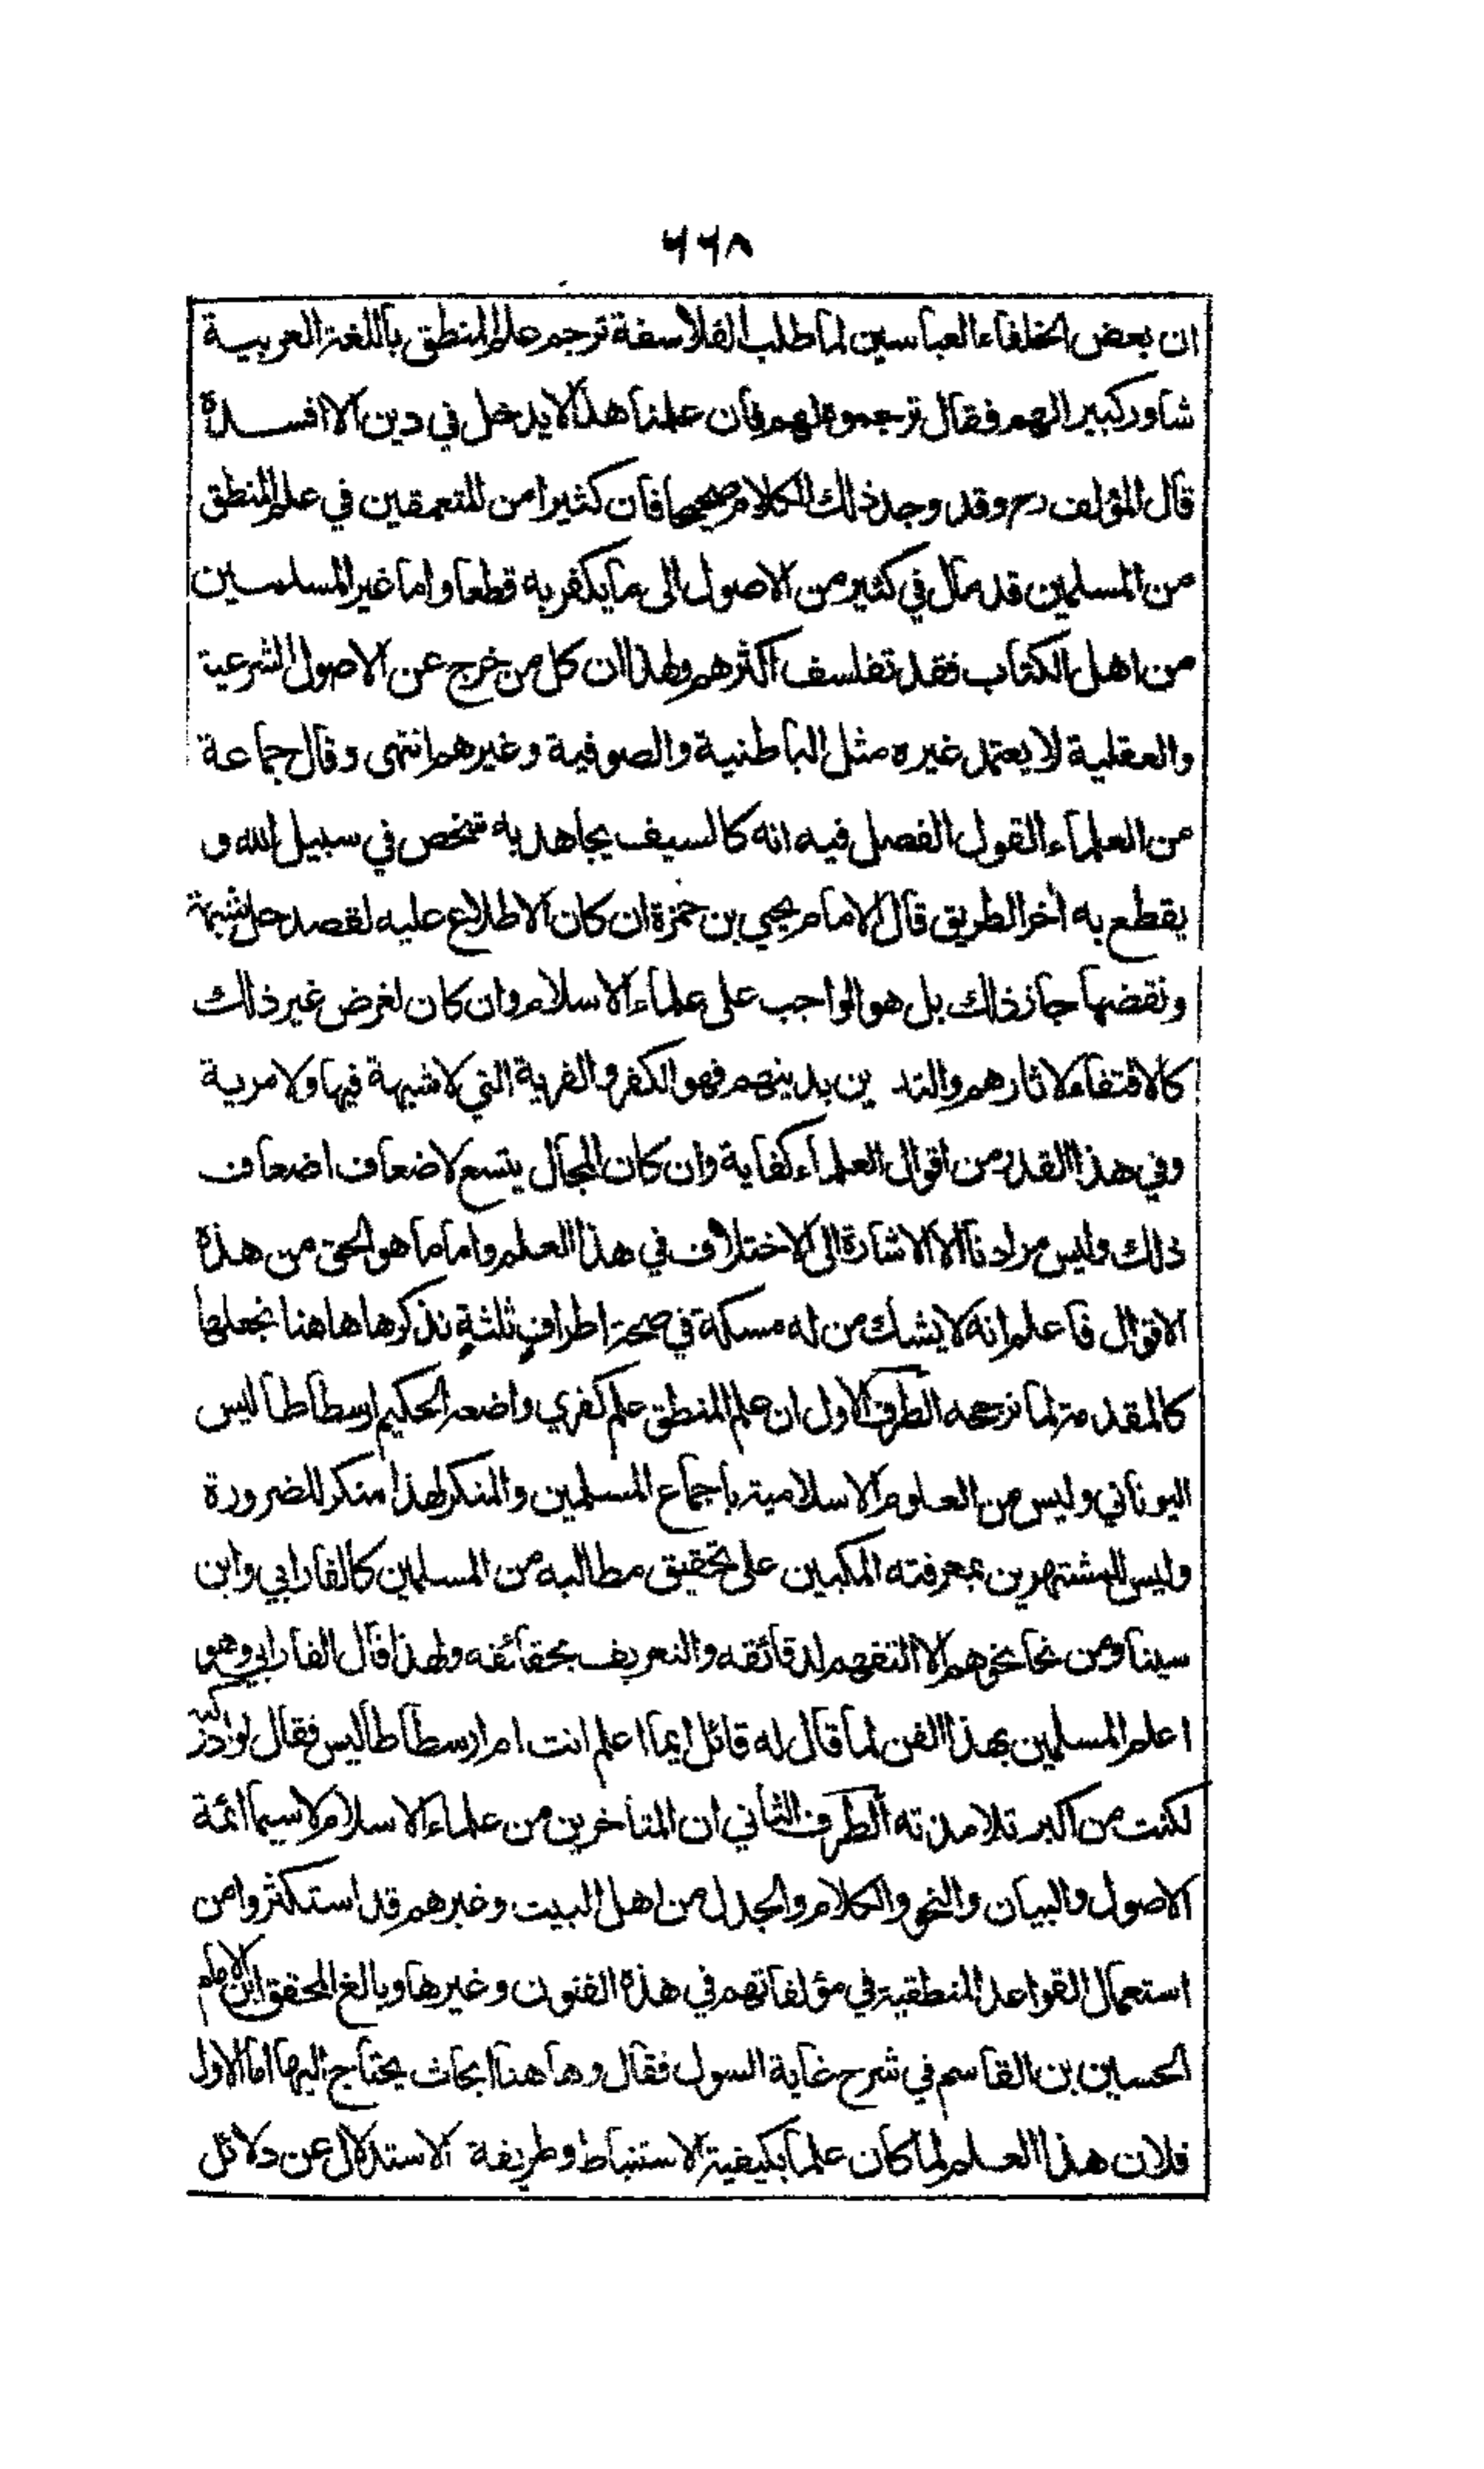 ٦٦٨
ان بعض الخلفاء العباسين لما طلب الفلاسفة ترجم علم المنطق باللغة العربية
شاور كبير الهم فقال ترجموة لهم فان علمنا هذا لا يدخل في دين الا افسده
قال المؤلف رح وقد وجد ذلك الكلام صحيحا فان كثيرا من المتعمقين في علم المنطق
من المسلمين قد مال في كثير من الاصول الى ما يكفر به قطعا واما غير المسلمين
من اهل الكتاب فقد تفلسف اكثرهم ولهذا ان كل من خرج عن الاصول الشرعية
والعقلية لا يعتمد غيره مثل الباطنية والصوفية وغيرهم انتهى وقال جماعة
من العلماء القول الفصل فيه انه كالسيف يجاهد به شخص في سبيل الله و
يقطع به آخر الطريق قال الامام يحيى بن حمزة ان كان الاطلاع عليه لقصد حل شبهة
ونقضها جاز ذلك بل هو الواجب على علماء الاسلام وان كان لغرض غير ذلك
كالاقتفاء لاثارهم والتدين بدينهم فهو الكفر والفرية التي لا شبهة فيها ولا مرية
وفي هذا القدر من اقوال العلماء كفاية وان كان المجال يتسع لاضعاف اضعاف
ذلك وليس مرادنا الا الاشارة الى الاختلاف في هذا العلم واما ما هو الحق من هذه
الاقوال فاعلم انه لا يشك من له مسكة في صحة اطراف ثلثة نذكرها هاهنا نجعلها
كالمقدمة لما نرجحه الطرف الاول ان علم المنطق علم كفري واضعه الحكيم ارسطاطاليس
اليوناني وليس من العلوم الاسلامية باجماع المسلمين والمنكر لهذا منكر للضرورة
وليس للمشتهرين بمعرفته المكبين على تحقيق مطالبه من المسلمين كالفارابي وابن
سينا ومن نحا نحوهم الا التفهم لدقائقه والتعريف بحقائقه ولهذا قال الفارابي وهو
اعلم المسلمين بهذا الفن لما قال له قائل ايما اعلم انت ام ارسطاطاليس فقال لو ادركته
لكنت من اكبر تلامذته الطرف الثاني ان المتاخرين من علماء الاسلام لا سيما ائمة
الاصول والبيان والنحو والكلام والجدل من اهل البيت وغيرهم قد استكثروا من
استعمال القواعد المنطقية في مؤلفاتهم في هذه الفنون وغيرها وبالغ المحقق ابن الامام
الحسين بن القاسم في شرح غاية السول فقال وهاهنا ابحاث يحتاج اليها اما الاول
فلان هذا العلم لما كان علما بكيفية الاستنباط وطريقة الاستدلال عن دلائل